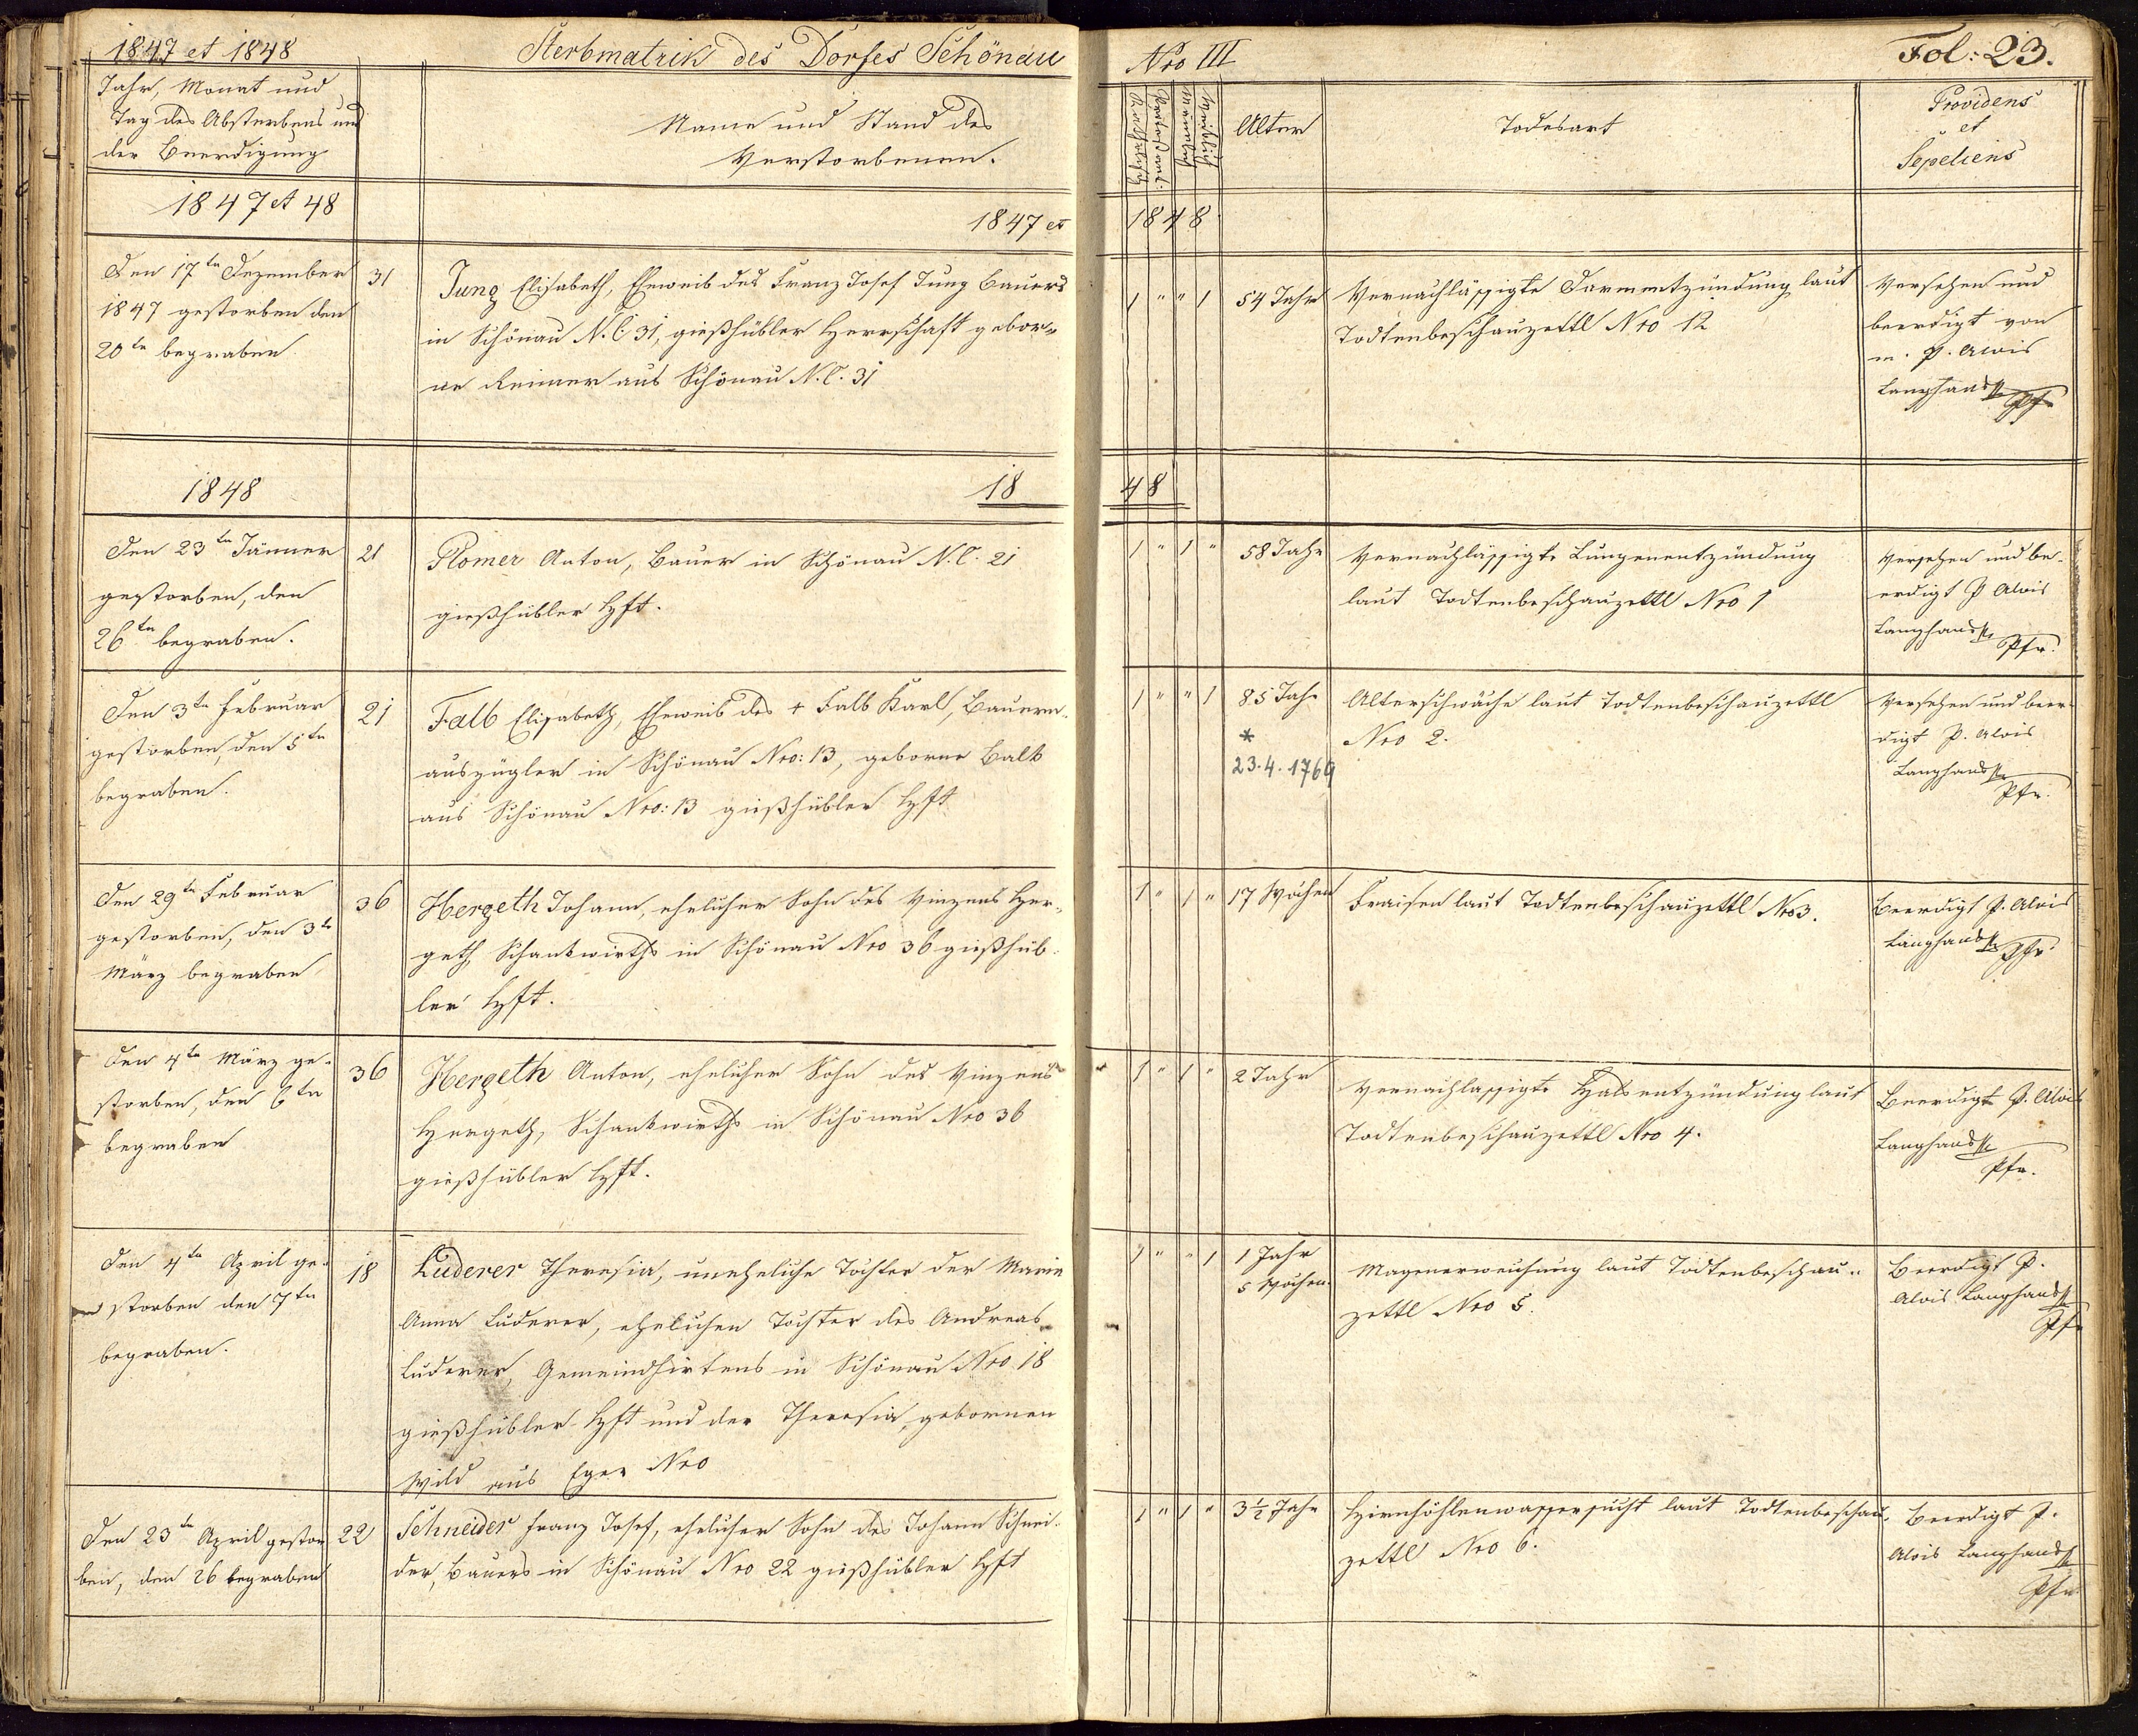 1847 et 1848
Sterbmatrik des Dorfes Schönau
Nro III
Fol: 23.
Jahr, Monat und
Tag des Absterbens und
der Beerdigung
Name und Stand des
Verstorbenen.
Katholisch
Männlich
Weiblich
Alter
Todesart
Providens
et
Sepeliens
1847 et 48
1847 et
1848
Den 17tn Dezember
1847 gestorben den
20tn begraben
31
Jung Elisabeth, Eheweib des Franz Josef Jung Bauers
in Schönau N.C 31, gießhübler Herrschaft gebor-
ne Reimer aus Schönau N.C. 31
1 " " 1
54 Jahr
Vernachläßigte Darmentzündung laut
Todtenbeschauzettl Nro 12
Versehen und
beerdigt von
m. P. Alois
Langhans
Pfr
1848
18
48
Den 23tn Jänner
gestorben, den
26tn begraben.
21
Plomer Anton, Bauer in Schönau N.C. 21
gießhübler Hft.
1 " 1 "
58 Jahr
Vernachläßigte Lungenentzündung
laut Todtenbeschauzettl Nro 1
Versehen und be-
erdigt P Alois
Langhans
Pfr.
Den 3tn Februar
gestorben, den 5tn
begraben.
21
Falb Elisabeth, Eheweib des + Falb Karl, Bauern-
auszügler in Schönau Nro: 13, geborne Balk
aus Schönau Nro: 13 gießhübler Hft
1 " " 1
85 Jahr
*
23.4.1769
Alterschwäche laut Todtenbeschauzettl
Nro 2.
Versehen und beer-
digt P. Alois
Langhans
Pfr.
Den 29tn Februar
gestorben, den 3tn
März begraben
36
Hergeth Johann, ehelicher Sohn des Vinzens Her-
geth Schankwirths in Schönau Nro 36 gießhüb-
ler Hft.
1 " 1 "
17 Wochen
Fraisen laut Todtenbeschauzettl Nro 3.
Beerdigt P. Alois
Langhans
Pfr
Den 4tn März ge-
storben, den 6tn
begraben
36
Hergeth Anton, ehelicher Sohn des Vinzens
Hergeth, Schankwirths in Schönau Nro 36
gießhübler Hft.
1 " 1 "
2 Jahr
Vernachlaßigte Halsentzündung laut
Todtenbeschauzettl Nro 4.
Beerdigt P. Alois
Langhans
Pfr.
Den 4tn April ge-
storben den 7tn
begraben.
18
Luderer Theresia, uneheliche Tochter der Marie
Anna Luderer, ehelichen Tochter des Andreas
Luderer, Gemeindhirtens in Schönau Nro 18
gießhübler Hft und der Theresia, gebornen
Wild aus Eger Nro
1 " " 1
1 Jahr
5 Wochen
Magenerweichung laut Todtenbeschau-
zettl Nro 5.
Beerdigt P.
Alois Langhans
Pfr
Den 23tn April gestor-
ben, den 26 begraben
22
Schneider Franz Josef, ehelicher Sohn des Johann Schnei-
der, Bauers in Schönau Nro 22 gießhübler Hft
1 " 1 "
3½ Jahr
Hirnhöhlenwassersucht laut Todtenbeschau-
zettl Nro 6.
Beerdigt P.
Alois Langhans
Pfr